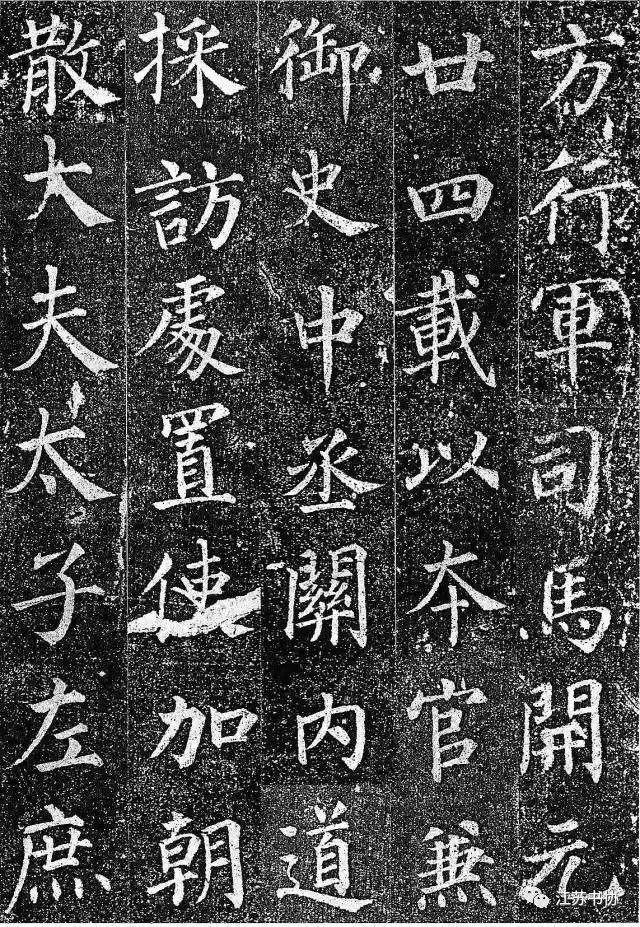 方行軍司馬開元
廿四載以本官兼
御史中丞關内道
採訪處置使加朝
散大夫太子左庶
江苏书协